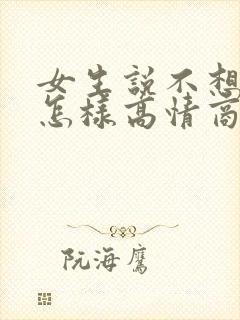 女生說不想
怎樣高情商
阮海鷹